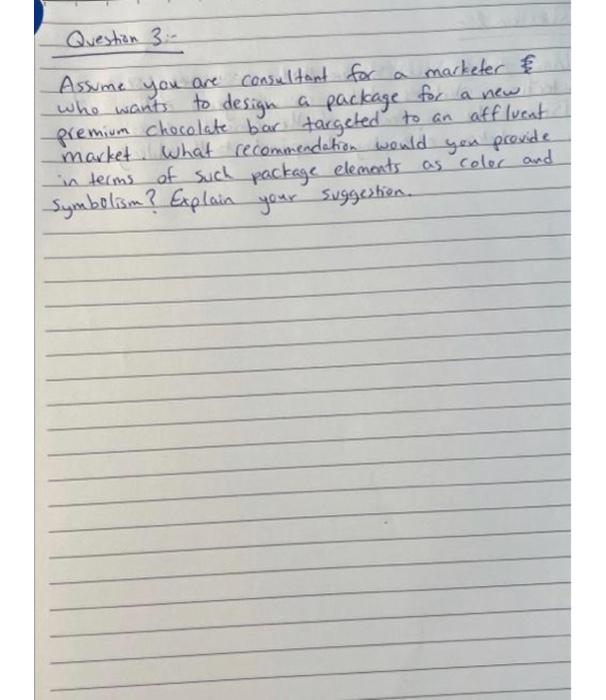 Question 3:-
Assume you are consultant for a marketer
who wants to design a package for a new
premium chocolate bar targeted to an affluent
market. What recommendation would you provide
in terms of such package elements as color and
symbolism? Explain your suggestion.